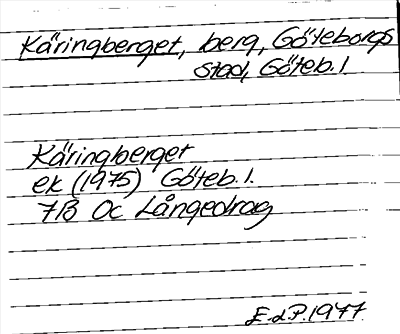 Käringberget, berg, Göteborgs
stad, Göteb. l.
Käringberget
ek (1975) Göteb. l.
7B Oc Långedrag
E.d.P. 1977